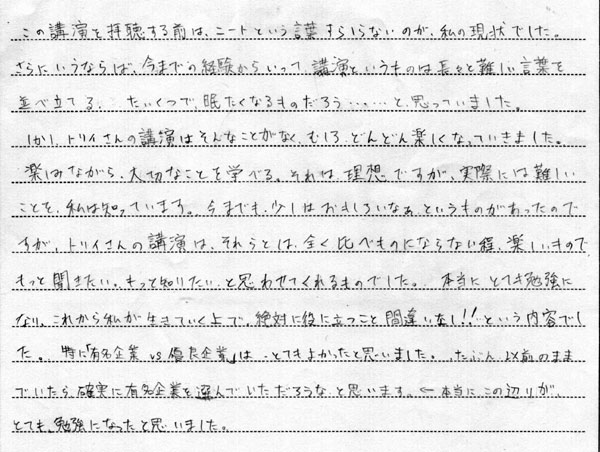 この講演を拝聴する前は、ニートという言葉すらしらないのが、私の現状でした。
さらにいうならば、今までの経験からいって、講演というものは長々と難しい言葉を
並べ立てる、たいくつで、眠たくなるものだろう……。と、思っていました。
しかし、トリイさんの講演はそんなことがなく、むしろ、どんどん楽しくなっていきました。
楽しみながら、大切なことを学べる。それは、理想ですが、実際には難しい
ことを、私は知っています。今までも、少しはおもしろいなぁ、というものがあったので
すが、トリイさんの講演は、それらとは、全く比べものにならない程、楽しいもので
もっと聞きたい。もっと知りたい。と思わせてくれるものでした。本当にとても勉強に
なり、これから私が生きていく上で、絶対に役に立つこと間違いなし!!という内容でし
た。特に「有名企業 vs 優良企業」は、とてもよかったと思いました。たぶん、以前のまま
でいたら、確実に有名企業を選んでいただろうな、と思います。←本当に、この辺りが、
とても、勉強になったと思いました。